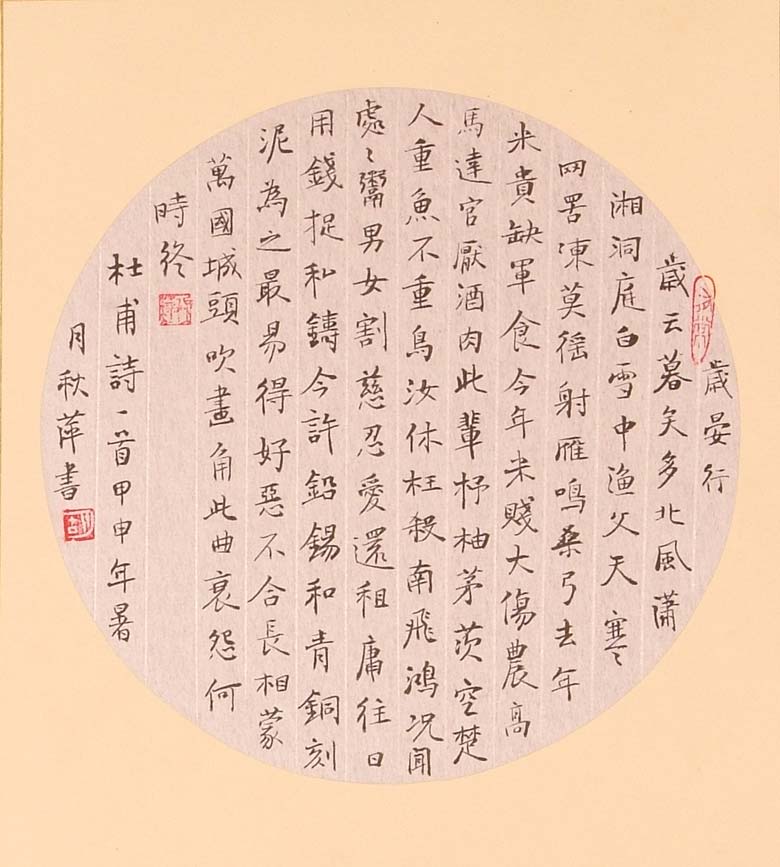 歲晏行
歲云暮矣多北風瀟
湘洞庭白雪中漁父天寒
网罟凍莫徭射雁鳴桑弓去年
米貴缺軍食今年米賤大傷農高
馬達官厭酒肉此輩杼柚茅茨空楚
人重魚不重鳥汝休枉殺南飛鴻況聞
處々鬻男女割慈忍愛還租庸往日
用錢捉私鑄今許鉛錫和青銅刻
泥為之最易得好惡不合長相蒙
萬國城頭吹畫角此曲哀怨何
時終
杜甫詩一首甲申年暑
月秋萍書